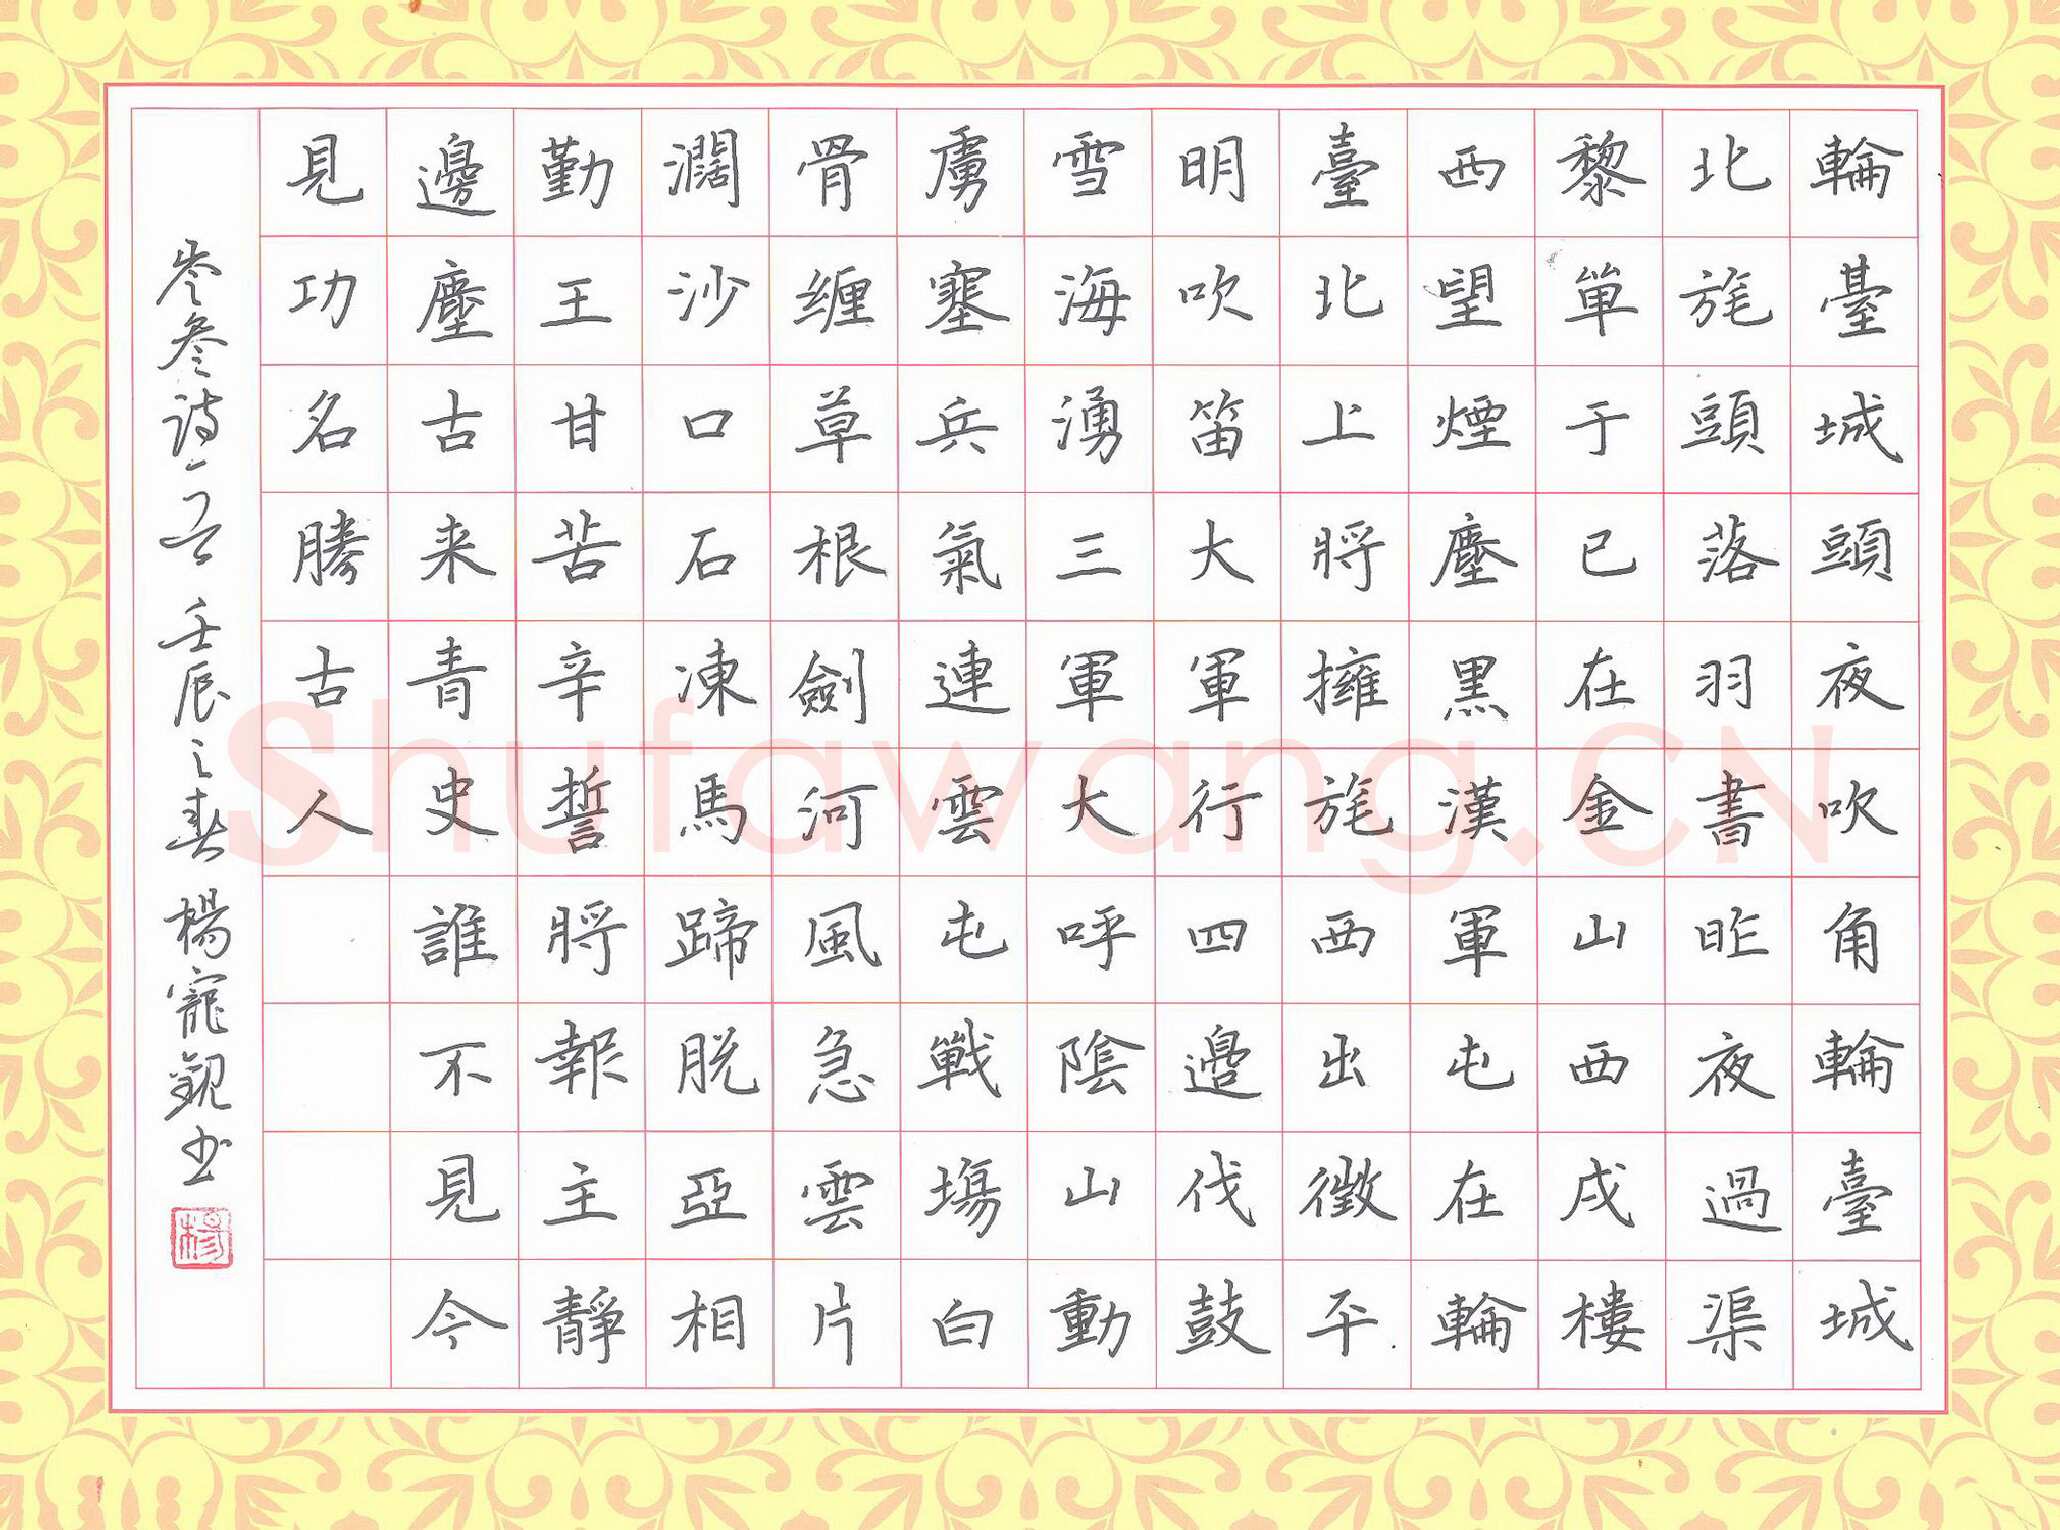 輪臺城頭夜吹角輪臺城
北旄頭落羽書昨夜過渠
黎單于已在金山西戍樓
西望煙塵黑漢軍屯在輪
臺北上將擁旄西出徵平
明吹笛大軍行四邊伐鼓
雪海湧三軍大呼陰山動
虜塞兵氣連雲屯戰場白
骨缠草根劍河風急雲片
濶沙口石凍馬蹄脱亞相
勤王甘苦辛誓將報主靜
邊塵古来青史誰不見今
見功名勝古人
岑参诗一首 壬辰之春 楊寵觀书
楊
Shufawang.CN